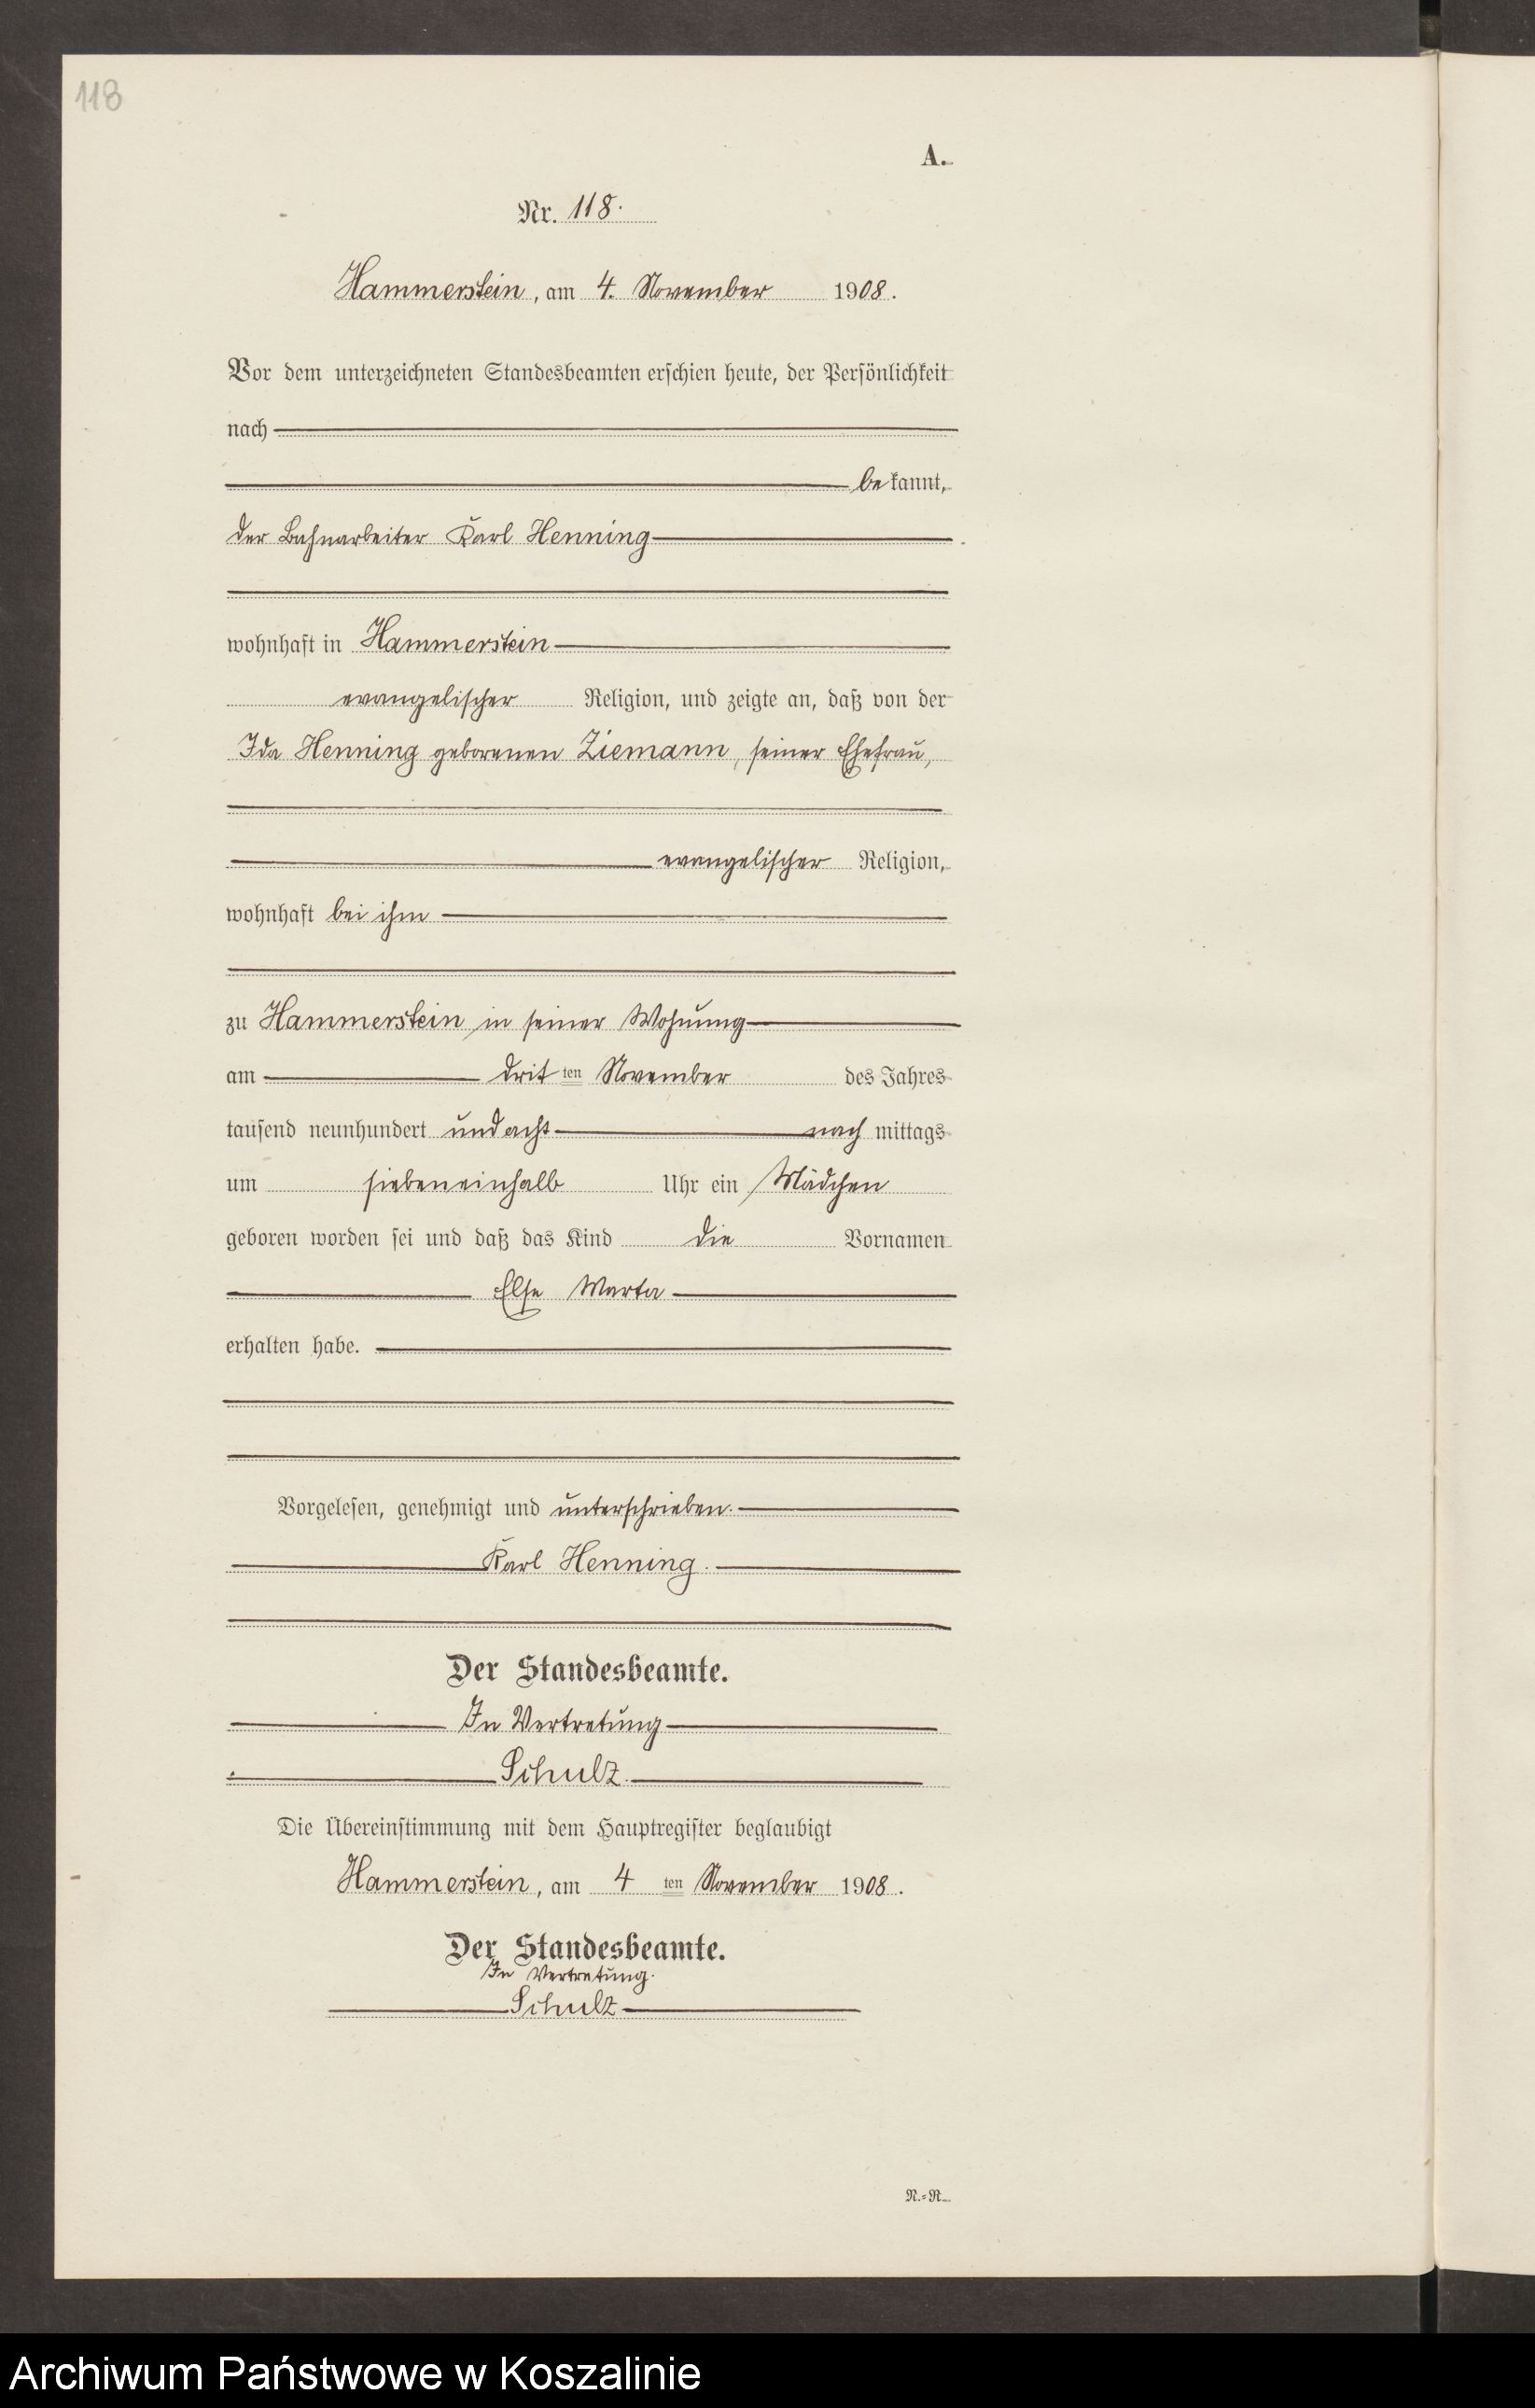 118
A.
Nr. 118.
Hammerstein, am 4. November 1908.
Vor dem unterzeichneten Standesbeamten erschien heute, der Persönlichkeit
nach
bekannt,
der Bahnarbeiter Karl Henning
wohnhaft in Hammerstein
evangelischer Religion, und zeigte an, daß von der
Ida Henning geborenen Ziemann, seiner Ehefrau,
evangelischer Religion,
wohnhaft bei ihm
zu Hammerstein in seiner Wohnung
am dritten November des Jahres
tausend neunhundert und acht nachmittags
um siebeneinhalb Uhr ein Mädchen
geboren worden sei und daß das Kind die Vornamen
Else Marta
erhalten habe.
Vorgelesen, genehmigt und unterschrieben.
Karl Henning.
Der Standesbeamte.
In Vertretung
Schulz.
Die Übereinstimmung mit dem Hauptregister beglaubigt
Hammerstein, am 4ten November 1908.
Der Standesbeamte.
In Vertretung.
Schulz
N.=R.
Archiwum Państwowe w Koszalinie